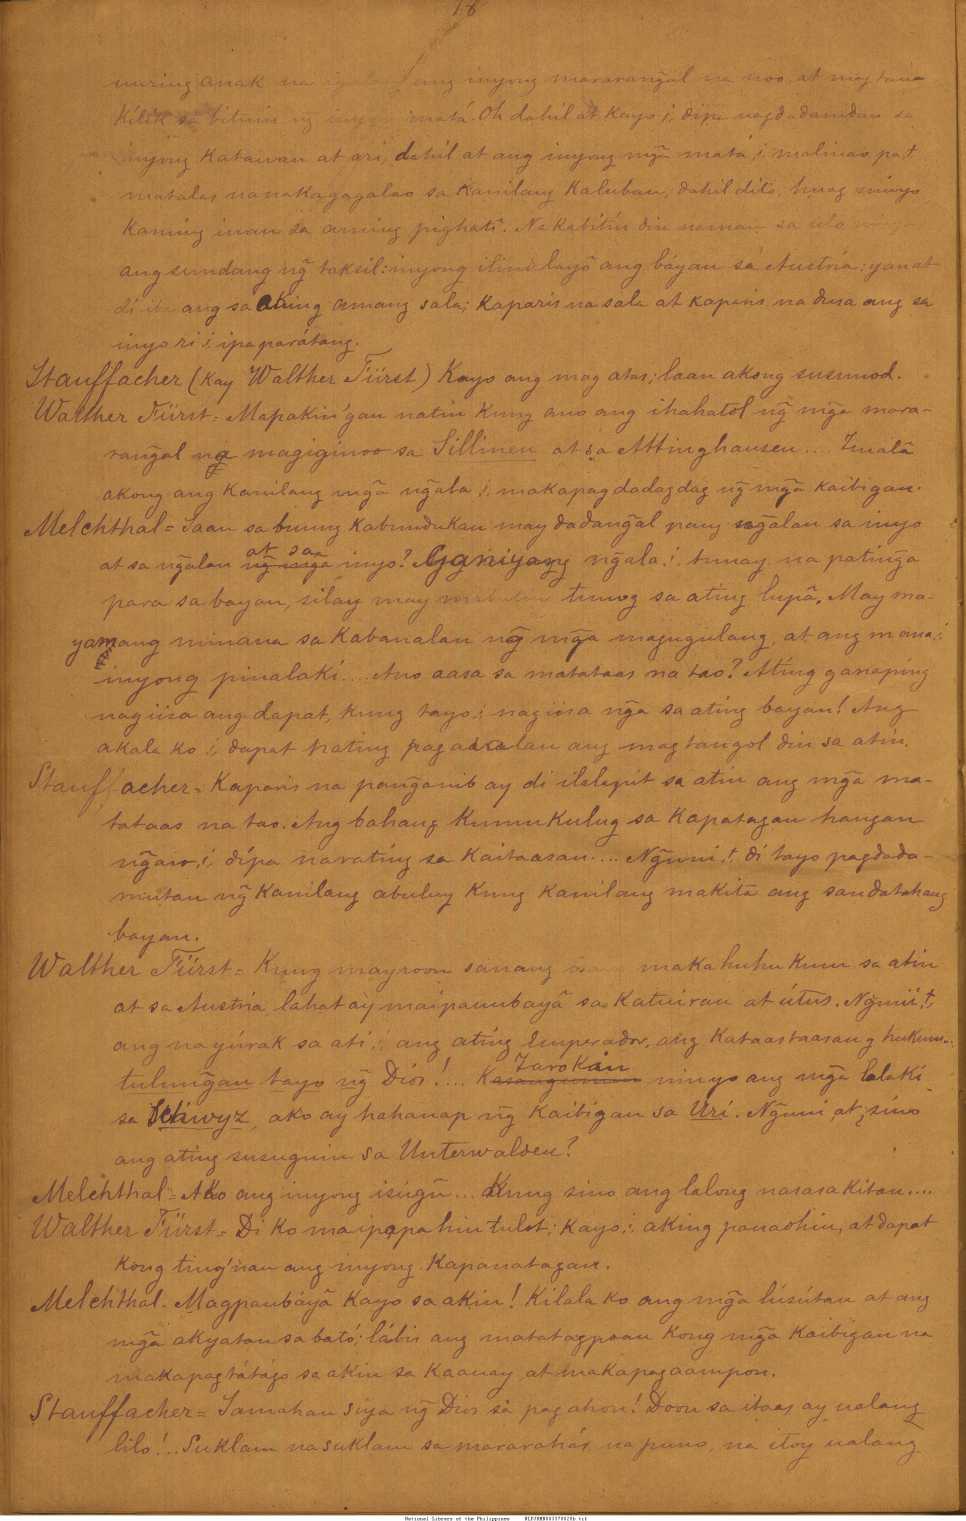 18
muring anak na ang inyong mararangãl na noo, at mag tania
kilik sa bituin ng inyong matá. Oh dahil at kayo i, dipa nagdadamdam sa
inyong katawan at ari, dahil at ang inyong mg̃a matá, i, malinao pa,t
matalas na nakagagalao sa kanilang kaluban, dahil dito, huag ninyo
kaming iwan sa aming pighati. Nakabitin din naman sa ulo ninyo
ang sundang ng̃ taksil: inyong itini layô ang báyan sa Austria; yan at
di iba ang sa aking amang sala; kaparis na sala at kaparis na dusa ang sa
inyo ri i, ipaparátang.
Stauffacher (kay Walther Fürst) Kayo ang mag atas; laan akong susunod.
Walther Fürst = Mapakin'gan natin kung ano ang ihahatol ng̃ mg̃a mara-
rang̃al ng̃ magiginoo sa Sillinen at sa Attinghausen.... Inalã
akong ang kanilang mg̃a ng̃ala, i, makapagdadagdag ng̃ mg̃a kaibigan.
Melchthal = Saan sa bunng kabundukan may dadang̃al pang ng̃alan sa inyo
at sa ng̃alan at sa inyo? Ganiyang ng̃ala, i, tunay na pating̃a
para sa bayan, silay may tunog sa ating lupã. May ma-
yamang minana sa kabanalan ng̃ mg̃a magugulang, at ang mana, i
inyong pinalaki.... Ano aasa sa matataas na tao? Ating ganaping
nagiisa ang dapat, kung tayo, i, nagiisa ng̃a sa ating bayan! Ang
akala ko i, dapat nating pag akalan ang magtangol din sa atin.
Stauffacher = Kaparis na pang̃anib ay di ilalapit sa atin ang mg̃a ma-
tataas na tao. Ang bahang kumukulug sa kapatagan hangan
ng̃aio, i, dípa narating sa kaitaasan.... Ng̃uni,t, di tayo pagdada-
mutan ng̃ kanilang abuluy kung kanilang makita ang sandatahang
bayan.
Walther Fürst = Kung mayroon sanang makahuhukum sa atin
at sa Austria lahat ay maipauubayã sa katuiran at útus. Ng̃uni,t,
ang nayúrak sa ati, i, ang ating Emperador, ang kataastaasang hukum...
tulung̃an tayo ng̃ Dios!... Tarokan ninyo ang mg̃a lalaki
sa Schwyz, ako ay hahanap ng̃ kaibigan sa Uri. Ng̃uni,at, sino
ang ating susuguin sa Unterwalden?
Melchthal = Ako ang inyong isúgu... Kung sino ang lalong nasasakitan....
Walther Fürst = Di ko maipapahintulot; kayo, i, aking panaohin, at dapat
kong ting'nan ang inyong kapanatagan.
Melchthal. Magpaubáyã kayo sa akin! Kilala ko ang mg̃a lúsútan at ang
mg̃a akyatan sa bató; lábis ang matatagpuan kong mg̃a kaibigan na
makapagtátágo sa akin sa kaauay at makapagaampon.
Stauffacher = Samahan siya ng̃ Dios sa pag ahon! Doon sa itaas ay ualang
lilo!.. Suklam na suklam sa mararahás na puno, na itoy ualang
National Library of the Philippines